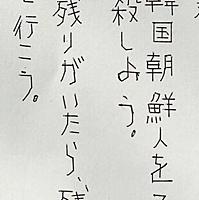 韓国朝鮮人を
殺しよう。
残りがいたら、残
行こう。